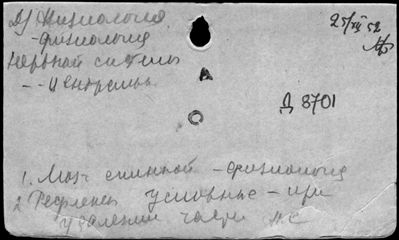 Д) Физиология
25/XII 52
-физиология
нервной системы
-- центральн
А
С
Д 8701
1. Мозг спинной - физиология
2 Рефлексы условные - при
удалении части